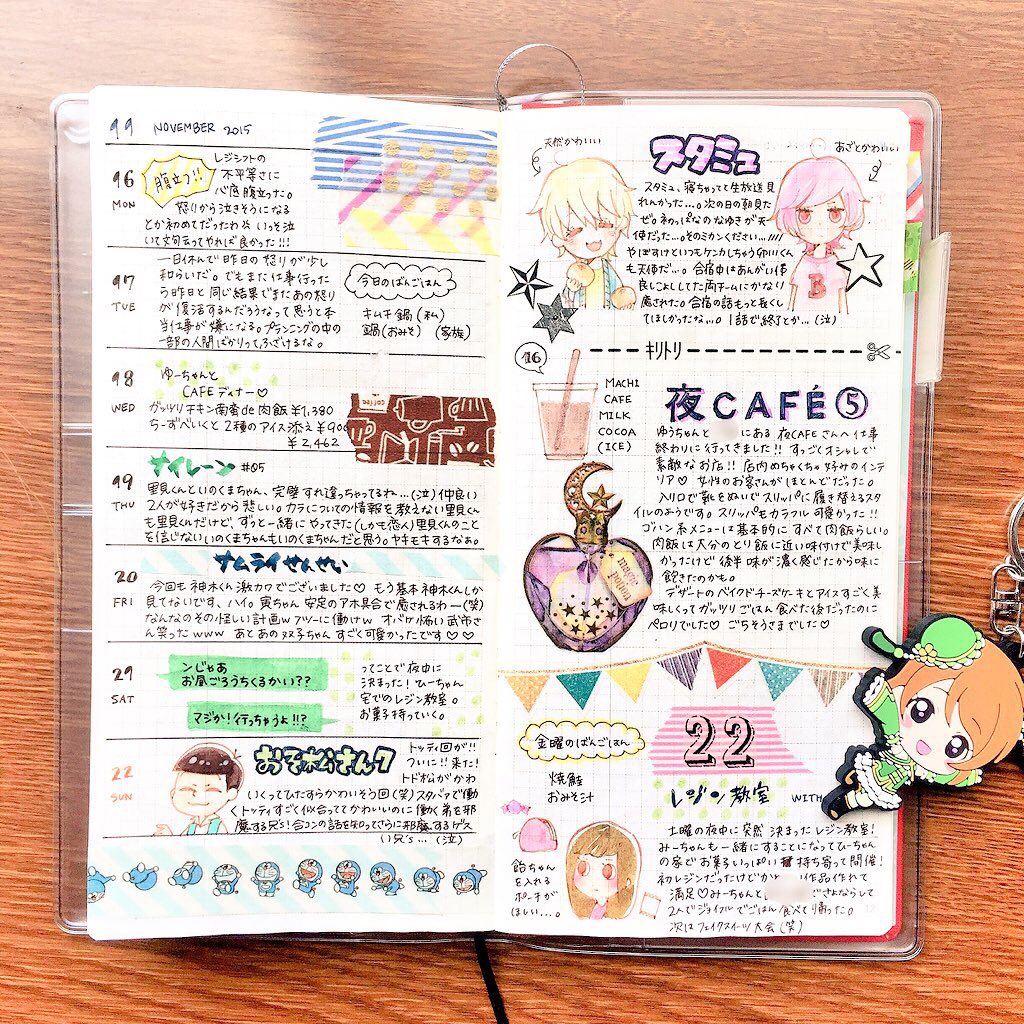 11 NOVEMBER 2015
16
MON
腹立つ!!
レジシフトの
不平等さに
心底腹立った。
怒りから泣きそうになる
とか初めてだったわ
いっそ泣
いて文句云ってやれば良かった!!!
17
TUE
一日休んで昨日の怒りが少し
和らいだ。でもまた仕事行った
ら昨日と同じ結果でまたあの怒り
が復活するんだろうなって思うと本
当仕事が嫌になる。プランニングの中の
一部の人間ばかりってふざけるな。
今日のばんごはん
キムチ鍋(私)
鍋(おみそ)(家族)
18
WED
ゆーちゃんと
CAFEディナー♡
ガッツリチキン南蛮de肉飯¥1,380
ちーずべいくと2種のアイス添え¥900
¥2,462
coffee
19
THU
サイレーン #05
里見くんといのくまちゃん、完璧すれ違っちゃってるね…(泣)仲良い
2人が好きだから悲しい。カラについての情報を教えない里見くん
も里見くんだけど、ずっと一緒にやってきた(しかも恋人)里見くんのこと
を信じないいのくまちゃんもいのくまちゃんだと思う。ヤキモキするなぁ。
20
FRI
サムライせんせい
今回も神木くん激カワでございました♡もう基本神木くんしか
見てないです、ハイ。寅ちゃん安定のアホ具合で癒されるわー(笑)
なんなのその怪しい計画wフツーに働けwオバケ怖い武市さ
ん笑ったwwwあとあの双子ちゃんすごく可愛かったです♡♡
21
SAT
んじゃあ
お昼ごろうちくるかい??
マジか!行っちゃうよ!!?
ってことで夜中に
決まった!ひーちゃん
宅でのレジン教室。
お菓子持っていく。
22
SUN
おそ松さん7
トッティ回が!!
ついに!!来た!
トド松がかわ
いくってひたすらかわいそう回(笑)スタバァで働
くトッティすごく似合っててかわいいのに働く弟を邪
魔する兄s!合コンの話を知ってさらに邪魔するゲス
い兄s…(泣)
天然かわいい
スタミュ
あざとかわいい
スタミュ、寝ちゃってて生放送見
れんかった…。次の日の朝見た
ぜ。ネっぱなのなゆきが天
使だった…。そのミカンください…!!!!
やぼすけといつもケンカしちゃう卯川くん
も天使だ…。合宿中はあんがい仲
良しこよししてた両チームにかなり
癒された。合宿の話もっと長くし
てほしかったな…。1話で終了とか…(泣)
B
16
キリトリ
MACHI
CAFE
MILK
COCOA
(ICE)
夜CAFÉ⑤
ゆうちゃんと にある夜CAFEさんへ仕事
終わりに行ってきました!!すっごくオシャレで
素敵なお店!!店内めちゃくちゃ好みのインテ
リア♡女性のお客さんがほとんどだった。
入り口で靴をぬいでスリッパに履き替えるスタ
イルのようです。スリッパもカラフル可愛かった!!
ゴハン系メニューは基本的にすべて肉飯らしい。
肉飯は大分のとり飯に近い味付けで美味し
かったけど後半味が濃く感じたから味に
飽きたのかも。
デザートのベイクドチーズケーキとアイスすごく美
味しくってガッツリごはん食べた後だったのに
ペロリでした♡ごちそうさまでした♡
magic
potion
金曜のばんごはん
焼鮭
おみそ汁
22
レジン教室
WITH
飴ちゃん
を入れる
ポーチが
ほしい…。
土曜の夜中に突然決まったレジン教室!
みーちゃんも一緒にすることになってひーちゃん
の家でお菓子いっぱい持ち寄って開催!
初レジンだったけどか 作品作れて
満足♡みーちゃんと ごさよならして
2人でジョイフルでごはん食べて帰った。
次はフェイクスイーツ大会(笑)